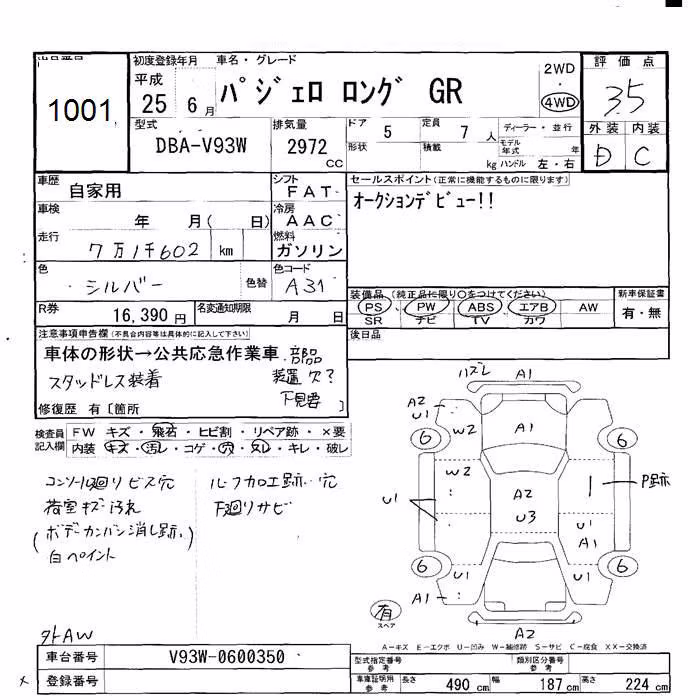 出品番号
1001
初度登録年月 車名・グレード
平成 25 6月
パジェロ ロング GR
2WD
4WD
評価点
3.5
型式
DBA-V93W
排気量
2972 CC
ドア 5
定員 7 人
形状 積載 kg
ディーラー・並行
モデル年式 年
ハンドル 左・右
外装 内装
D C
車歴
自家用
シフト
FAT
セールスポイント(正常に機能するものに限ります)
オークションデビュー!!
車検
年 月( 日)
冷房
AAC
走行
7万1千602 km
燃料
ガソリン
色
シルバー
色替
色コード
A31
装備品(純正品に限り○をつけてください)
PS PW ABS エアB AW
SR ナビ TV カワ
新車保証書
有・無
R券
16,390円
名変通知期限
月 日
後日品
注意事項申告欄(不具合内容等は具体的に記入して下さい)
車体の形状→公共応急作業車 部品
スタッドレス装着 装置欠?
下見要
修復歴 有〔箇所 〕
検査員記入欄
FW キズ・飛石・ヒビ割・リペア跡・×要
内装 キズ・汚レ・コゲ・穴・ヌレ・キレ・破レ
コンソール廻リビス穴
荷室キズ汚れ
(ボデーカンバン消し跡)
白ペイント
ルーフカロエ跡・穴
下廻リサビ
ハズレ A1
A2
U1
W2
A1
6 6
W2
A2
U3
P跡
U1
U1
A1
6 6
U1 U1
A1
A2
有
スペア
外AW
A-キズ E-エクボ U-凹み W-補修跡 S-サビ C-腐食 XX-交換済
車台番号
V93W-0600350
登録番号
型式指定番号 参考
類別区分番号 参考
車庫証明用 参考
長さ 490 cm
幅 187 cm
高さ 224 cm